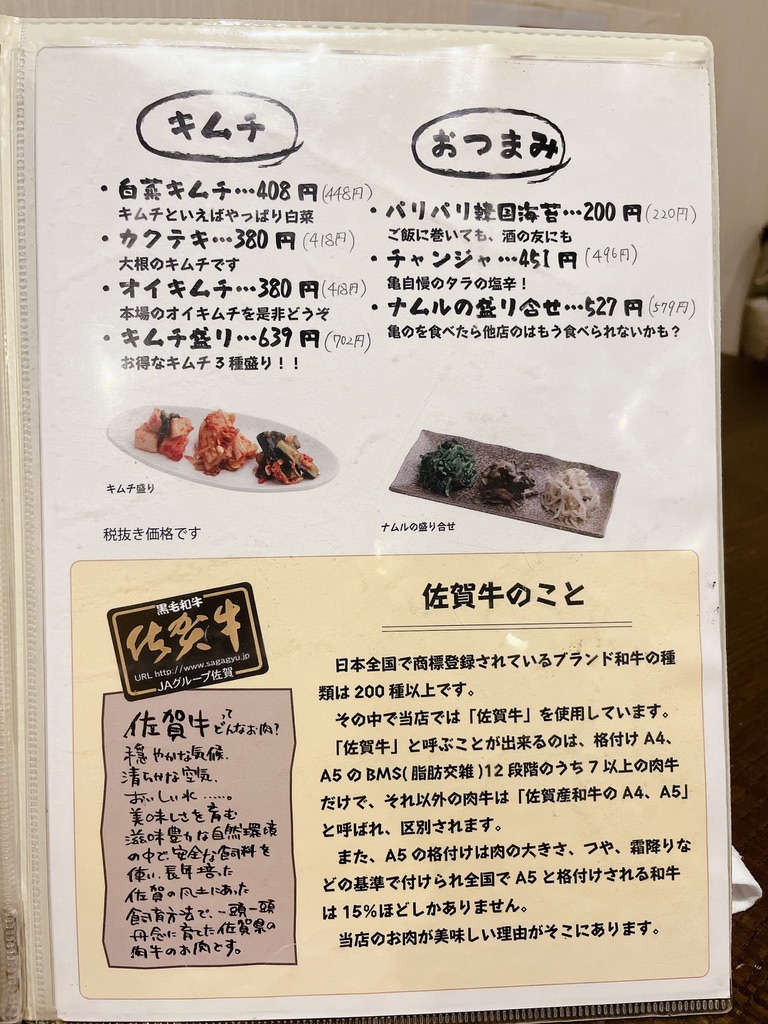 キムチ
・白菜キムチ…408円(448円)
キムチといえばやっぱり白菜
・カクテキ…380円(418円)
大根のキムチです
・オイキムチ…380円(418円)
本場のオイキムチを是非どうぞ
・キムチ盛り…639円(702円)
お得なキムチ3種盛り！！
おつまみ
・パリパリ韓国海苔…200円(220円)
ご飯に巻いても、酒の友にも
・チャンジャ…451円(496円)
亀自慢のタラの塩辛！
・ナムルの盛り合せ…527円(579円)
亀のを食べたら他店のはもう食べられないかも？
キムチ盛り
ナムルの盛り合せ
税抜き価格です
黒毛和牛
佐賀牛
URL http://www.sagagyu.jp
JAグループ佐賀
佐賀牛って
どんなお肉？
穏やかな気候、
清らかな空気、
おいしい水……。
美味しさを育む
滋味豊かな自然環境
の中で、安全な飼料を
使い、長年培った
佐賀の風土にあった
飼育方法で、一頭一頭
丹念に育てた佐賀県の
肉牛のお肉です。
佐賀牛のこと
日本全国で商標登録されているブランド和牛の種
類は200種以上です。
その中で当店では「佐賀牛」を使用しています。
「佐賀牛」と呼ぶことが出来るのは、格付けA4、
A5のBMS(脂肪交雑)12段階のうち7以上の肉牛
だけで、それ以外の肉牛は「佐賀産和牛のA4、A5」
と呼ばれ、区別されます。
また、A5の格付けは肉の大きさ、つや、霜降りな
どの基準で付けられ全国でA5と格付けされる和牛
は15%ほどしかありません。
当店のお肉が美味しい理由がそこにあります。